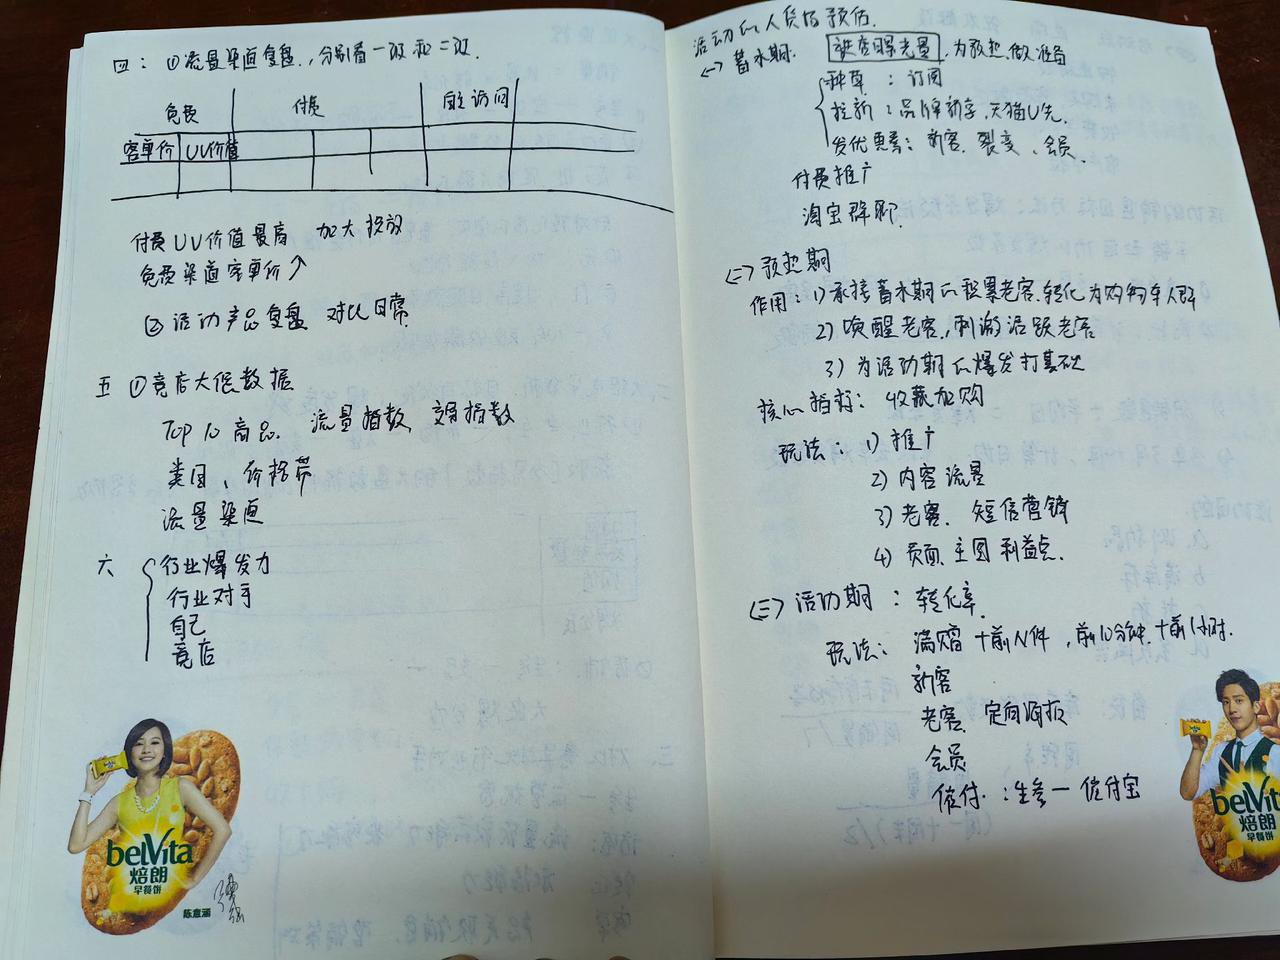 四：①流量渠道复盘，分别看一班和二班.
免费 付费 自主访问
客单价 UV价值
付费UV价值最高 加大投放
免费渠道客单价↑
② 活动产品复盘 对比日常.
五 ①竞店大促数据
Top 10 商品. 流量指数, 交易指数
类目、价格带
流量渠道
六 行业爆发力
行业对手
自己
竞店
belVita
焙朗
早餐饼
陈意涵
活动的人货场预估.
<一> 蓄水期: 进店曝光量, 为预热做准备
种草：订阅
拉新：品牌新享, 天猫U先.
发优惠券：新客、裂变、会员.
付费推广
淘宝群聊.
<二> 预热期
作用：1) 承接蓄水期的积累老客, 转化为购物车人群
2) 唤醒老客, 刺激活跃老客
3) 为活动期的爆发打基础
核心指标：收藏加购
玩法：1) 推广
2) 内容流量
3) 老客、短信营销
4) 页面、主图利益点.
<三> 活动期：转化率.
玩法：满赠+前N件, 前10分钟, +前1小时.
新客
老客、定向海报
会员
催付.：生参一催付宝
belVita
焙朗
早餐饼